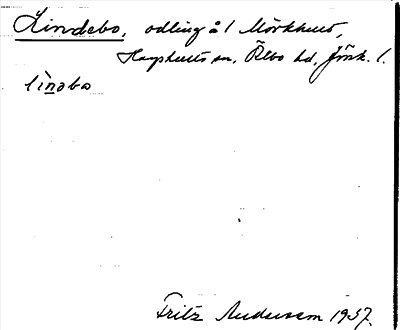 Lindebo, odling å 1 Mörkhult,
Hagshults sn, Östbo hd, Jönk. l.
linəbo
Fritz Andersson 1957.